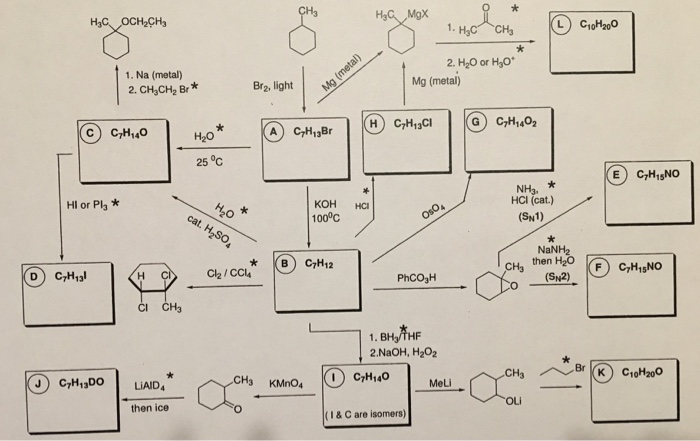 H₃C OCH₂CH₃
CH₃
H₃C MgX
O *
1. H₃C CH₃
*
2. H₂O or H₃O⁺
L C₁₀H₂₀O
1. Na (metal)
2. CH₃CH₂ Br *
Br₂, light
Mg (metal)
Mg (metal)
C C₇H₁₄O
H₂O *
25 °C
A C₇H₁₃Br
H C₇H₁₃Cl
G C₇H₁₄O₂
E C₇H₁₅NO
HI or PI₃ *
H₂O *
cat. H₂SO₄
KOH
100⁰C
*
HCl
OsO₄
NH₃, *
HCl (cat.)
(SN1)
*
NaNH₂
then H₂O
(SN2)
D C₇H₁₃I
H Cl
Cl CH₃
*
Cl₂ / CCl₄
B C₇H₁₂
PhCO₃H
CH₃
O
F C₇H₁₅NO
*
1. BH₃/THF
2.NaOH, H₂O₂
J C₇H₁₃DO
*
LiAlD₄
then ice
CH₃
O
KMnO₄
I C₇H₁₄O
(I & C are isomers)
MeLi
CH₃
OLi
*
Br
K C₁₀H₂₀O